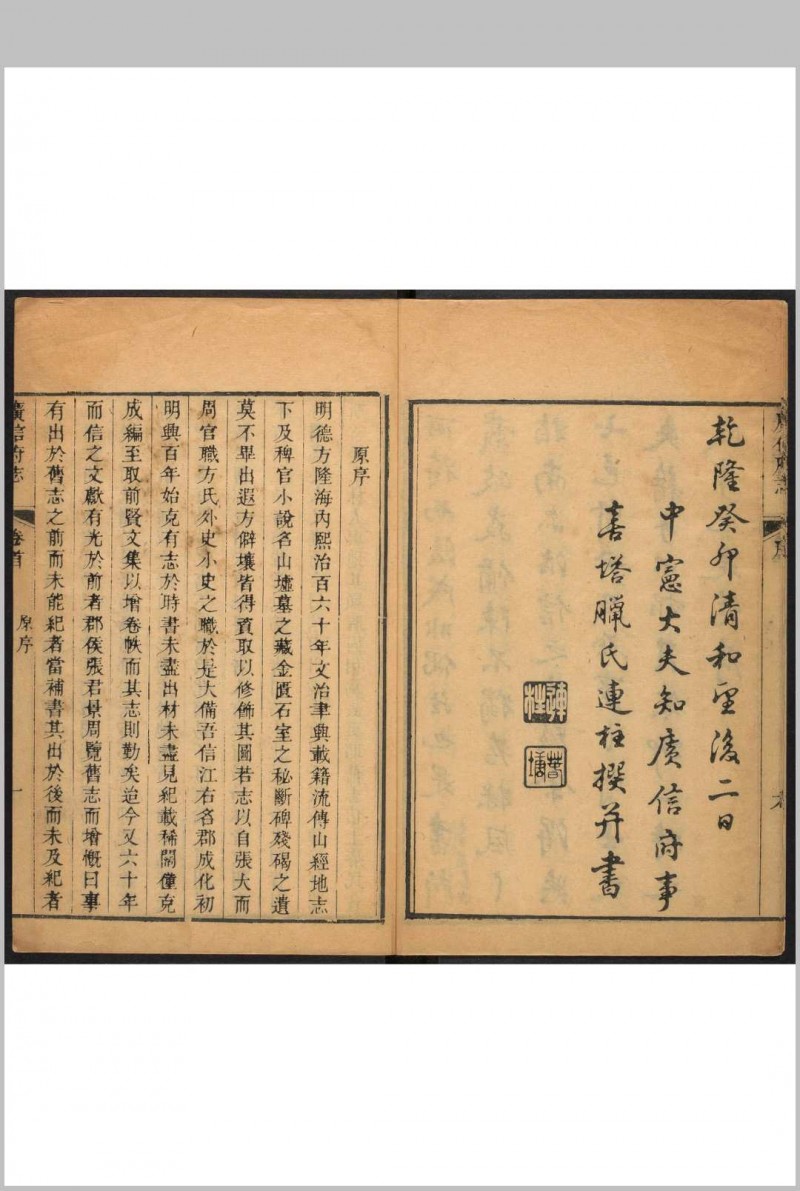 乾隆癸卯清和望後二日
中憲大夫知廣信府事
喜塔臘氏連柱撰并書
原序
明德方隆海內熙治百六十年文治聿興載籍流傳山經地志
下及稗官小說名山墟墓之藏金匱石室之秘斷碑殘碣之遺
莫不畢出遐方僻壤皆得賓取以修飾其圖若志以自張大而
周官職方氏外史小史之職於是大備吾信江右名郡成化初
明興百年始克有志於時書未盡出材未盡見紀載稀闊僅克
成編至取前賢文集以增卷帙而其志則勤矣迨今又六十年
而信之文獻有光於前者郡侯張君景周覽舊志而增慨曰事
有出於舊志之前而未能紀者當補書其出於後而未及紀者
廣信府志
卷首
原序
一